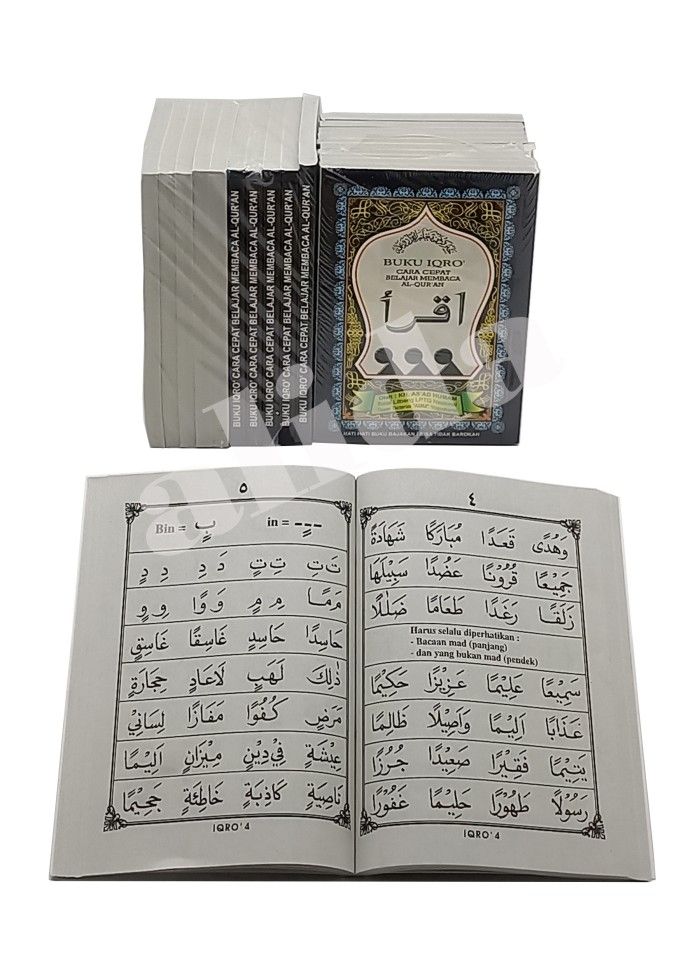 BUKU IQRO' CARA CEPAT BELAJAR MEMBACA AL-QUR'AN
BUKU IQRO' CARA CEPAT BELAJAR MEMBACA AL-QUR'AN
BUKU IQRO' CARA CEPAT BELAJAR MEMBACA AL-QUR'AN
BUKU IQRO' CARA CEPAT BELAJAR MEMBACA AL-QUR'AN
BUKU IQRO' CARA CEPAT BELAJAR MEMBACA AL-QUR'AN
BUKU IQRO'
CARA CEPAT
BELAJAR MEMBACA
AL-QUR'AN
اقرأ
Oleh : KH. AS'AD HUMAM
HATI-HATI BUKU BAJAKAN TIDAK BAROKAH
٤
وَهُدًى قَعَدًا مُبَارَكًا شَهَادَةً
جَمِيْعًا قُرُوْنًا عَضُدًا سَبِيْلَهَا
زَلَقًا رَغَدًا طَعَامًا ضَلٰلًا
Harus selalu diperhatikan :
- Bacaan mad (panjang)
- dan yang bukan mad (pendek)
سَمِيْعًا عَلِيْمًا عَزِيْزًا حَكِيْمًا
عَذَابًا اَلِيْمًا وَاَصِيْلًا ظَالِمًا
يَتِيْمًا فَقِيْرًا صَعِيْدًا جُرُزًا
رَسُوْلًا طَهُوْرًا حَلِيْمًا غَفُوْرًا
IQRO'4
٥
Bin = بٍ in = ـٍـ
تَ تِ تِ تٍ دَ دِ دِ دٍ
مَ مًا مِ مٍ وَ وًا وِ وٍ
حَاسِدًا حَاسِدٍ غَاسِقًا غَاسِقٍ
ذٰلِكَ لَهَبٍ لَاعَادٍ حِجَارَةٍ
مَرَضٍ كُفُوًا مَفَازًا لِسَانِيْ
عِيْشَةٍ فِيْ دِيْنِ مِيْزَانٍ اَلِيْمًا
نَاصِيَةٍ كَاذِبَةٍ خَاطِئَةٍ جَحِيْمًا
IQRO'4